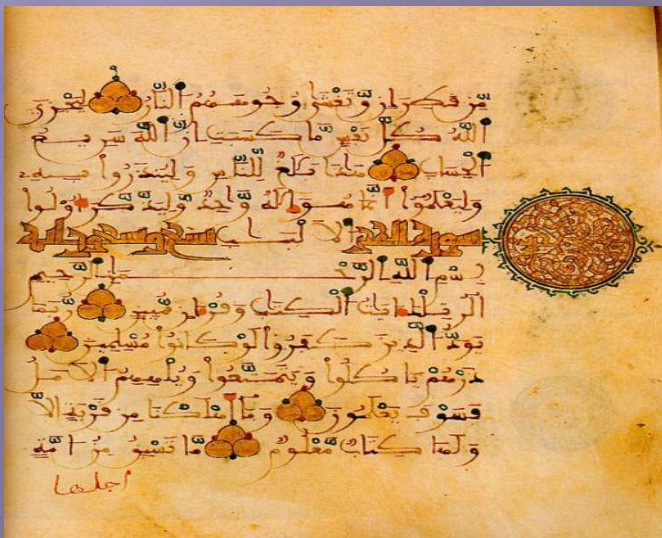 مِّن قَطِرَانٍ وَّتَغْشَىٰ وُجُوهَهُمُ النَّارُ لِيَجْزِيَ
اللَّهُ كُلَّ نَفْسٍ مَّا كَسَبَتْ إِنَّ اللَّهَ سَرِيعُ
الْحِسَابِ هَٰذَا بَلَٰغٌ لِّلنَّاسِ وَلِيُنذَرُوا بِهِ
وَلِيَعْلَمُوا أَنَّمَا هُوَ إِلَٰهٌ وَّاحِدٌ وَّلِيَذَّكَّرَ أُولُوا
سورة الحجر الْأَلْبَابِ تسع وتسعون اية
بِسْمِ اللَّهِ الرَّحْمَٰنِ الرَّحِيمِ
الر تِلْكَ ءَايَٰتُ الْكِتَٰبِ وَقُرْءَانٍ مُّبِينٍ رُّبَمَا
يَوَدُّ الَّذِينَ كَفَرُوا لَوْ كَانُوا مُسْلِمِينَ
ذَرْهُمْ يَاكُلُوا وَيَتَمَتَّعُوا وَيُلْهِهِمُ الْأَمَلُ
فَسَوْفَ يَعْلَمُونَ وَمَا أَهْلَكْنَا مِن قَرْيَةٍ إِلَّا
وَلَهَا كِتَابٌ مَّعْلُومٌ مَّا تَسْبِقُ مِنْ أُمَّةٍ
اجلها